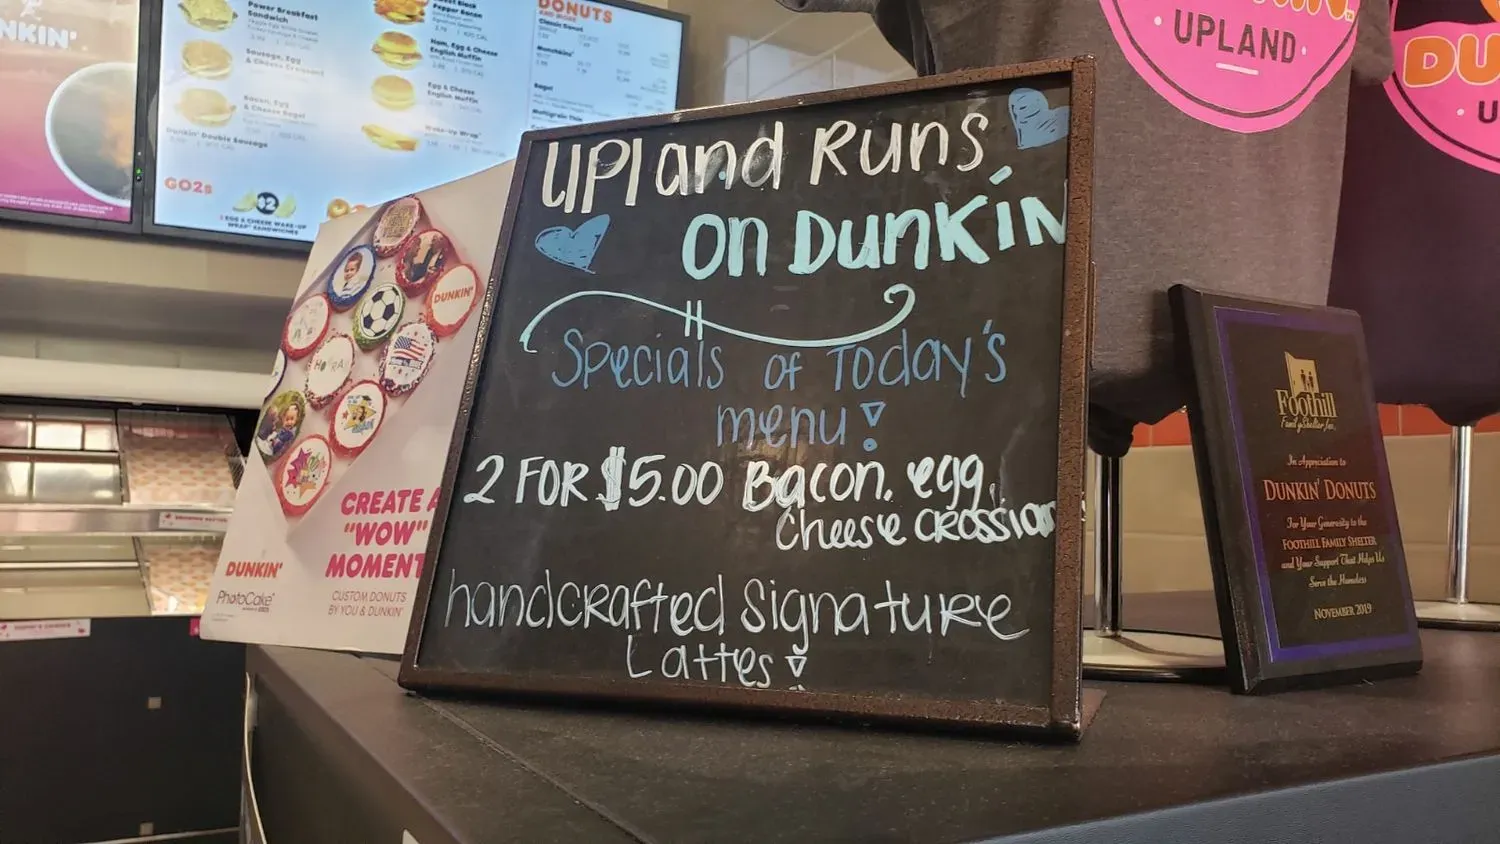 UPland Runs
on Dunkin
Specials of Today's
menu!
2 FOR $5.00 Bacon, egg,
Cheese CROSSIAN
handcrafted Signature
Lattes!
NKIN'
Power Breakfast
Sandwich
Sausage, Egg
& Cheese Croissant
Bacon, Egg
& Cheese Bagel
Dunkin' Double Sausage
GO2s
$2
2 EGG & CHEESE WAKE-UP
WRAP® SANDWICHES
Pepper Bacon
Ham, Egg & Cheese
English Muffin
Egg & Cheese
English Muffin
Wake-Up Wrap®
DONUTS
AND MORE
Classic Donut
Munchkins®
Bagel
Multigrain Thin
DUNKIN'
CREATE A
"WOW"
MOMENT
DUNKIN'
PhotoCake®
CUSTOM DONUTS
BY YOU & DUNKIN'
· UPLAND ·
DU
· U
Foothill
Family Shelter, Inc.
In Appreciation to
DUNKIN' DONUTS
For Your Generosity to the
FOOTHILL FAMILY SHELTER
and Your Support That Helps Us
Serve the Homeless
NOVEMBER 2019